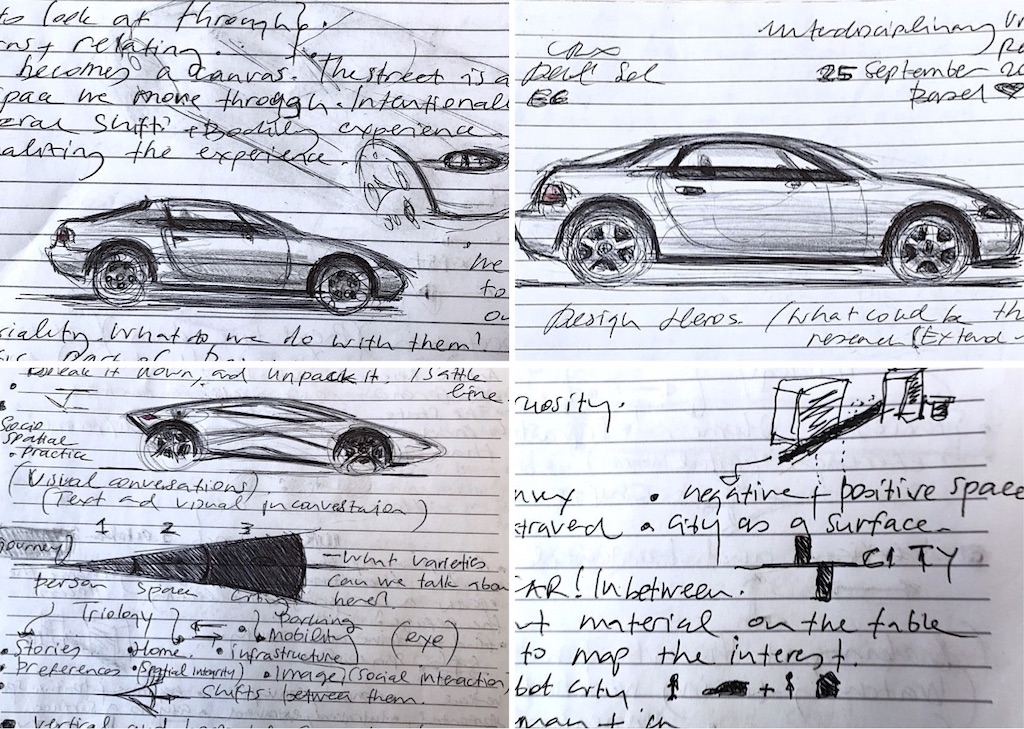 to look at through?
relating.
becomes a canvas. The street is a
we move through. Intentional
shift? Bodily experience
the experience.
we
to
What to we do with them?
part of
Interdisciplinary
CRX
Del Sol
EG
25 September 20
Basel
Design Heros. (What could be th
research (Extend
Break it down, and unpack it. / Sattle
line
Socio
Spatial
• Practice
(Visual conversations)
(Text and visual in conversation)
1 2 3
Journey)
What varieties
person space City
can we talk abou
here?
Triology
• Parking
• Mobility
(exe)
• Stories • Home. • infrastructure
• Preferences • (Spatial integrity) • Image (social interaction
Shifts between them.
• Vertical and
uosity.
• negative + positive space
• City as a surface.
CITY
AR! Inbetween.
material on the table
to map the interest.
bot City +
man +